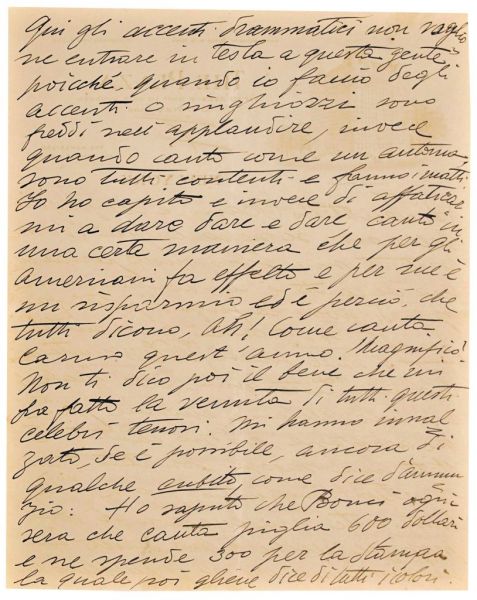 Qui gli accenti drammatici non voglio
ne entrare in testa a questa gente,
poicché, quando io faccio degli
accenti o singhiozzi sono
freddi nell'applaudire, invece
quando canto come un automa,
sono tutti contenti e fanno i matti.
Io ho capito e invece di affaticar
mi a dare dare e dare canto in
una certa maniera che per gli
americani fa effetto e per me è
un risparmio ed è perciò, che
tutti dicono, Ah! Come canta
Caruso quest'anno. Magnifico!
Non ti dico poi il bene che mi
ha fatto la venuta di tutti questi
celebri tenori. Mi hanno innal
zato, se è possibile, ancora di
qualche cubito, come dice d'Annun
zio: Ho saputo che Bonci ogni
sera che canta piglia 600 dollari
e ne spende 300 per la stampa
la quale poi gliene dice di tutti i colori.